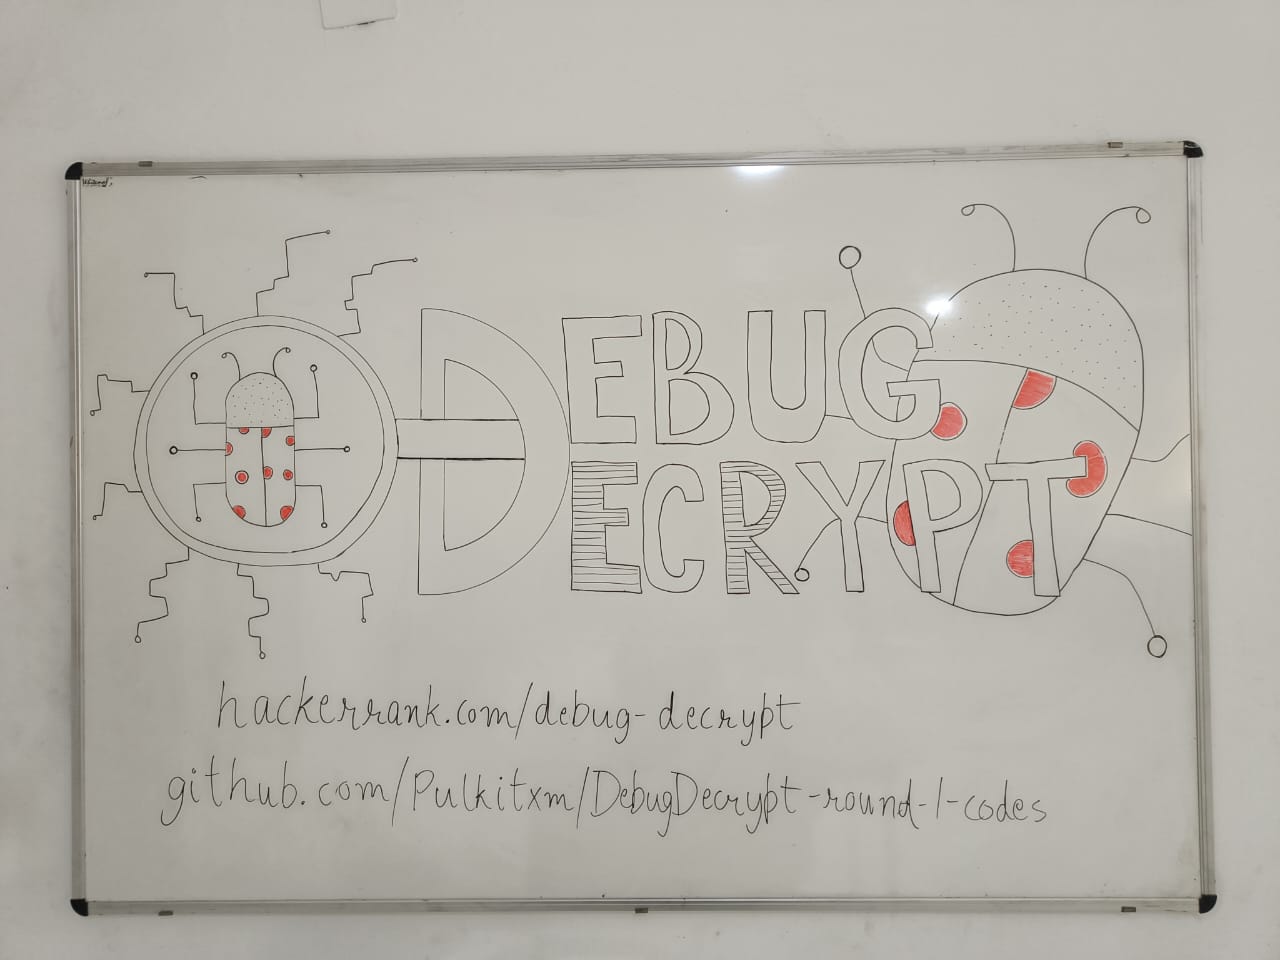 DEBUG
DECRYPT
hackerrank.com/debug-decrypt
github.com/Pulkitxm/DebugDecrypt-round-1-codes